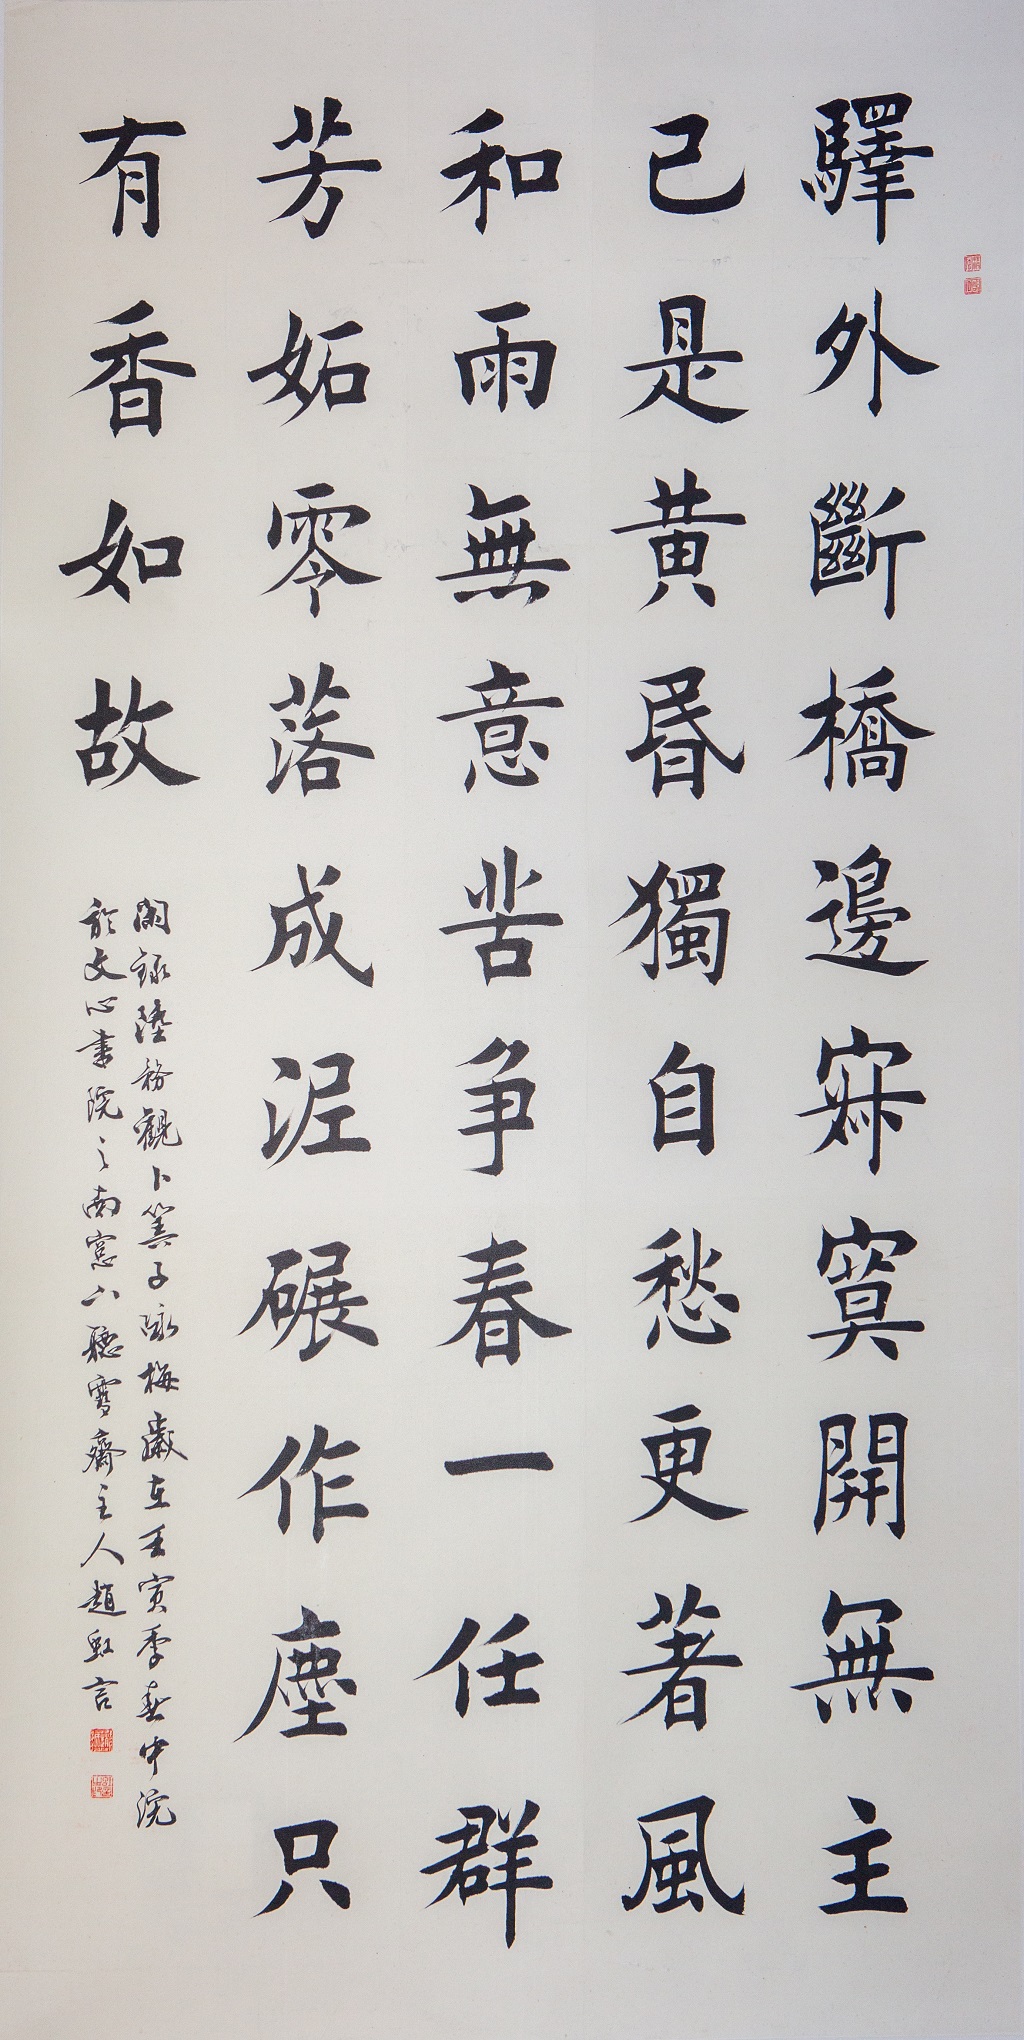 驛外斷橋邊寂寞開無主
已是黃昏獨自愁更著風
和雨無意苦爭春一任群
芳妬零落成泥碾作塵只
有香如故
閑錄陸務觀卜算子詠梅歲在壬寅季春中浣
於文心書院之南窓下聽雪齋主人趙
言